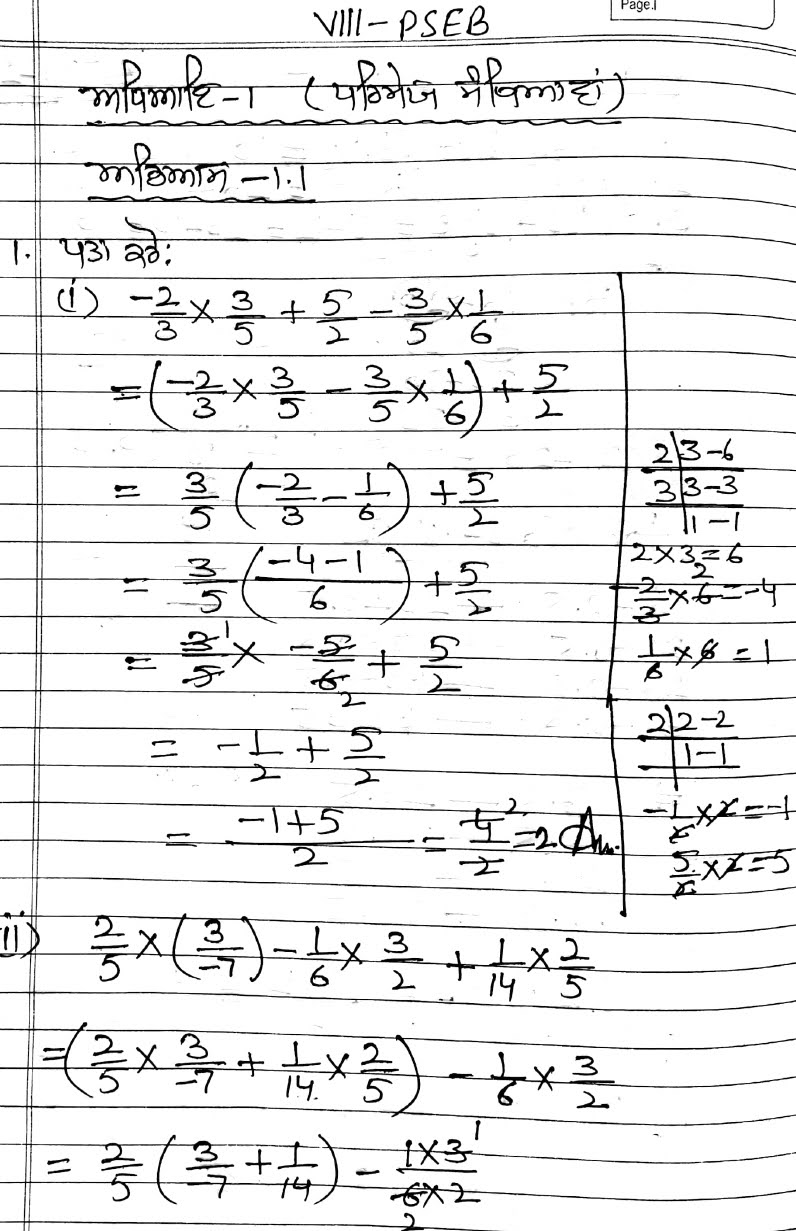 Page.
VIII - PSEB
ਅਧਿਆਇ-1 (ਪਰਿਮੇਯ ਸੰਖਿਆਵਾਂ)
ਅਭਿਆਸ -1.1
1. ਪਤਾ ਕਰੋ:
(i) -2/3 × 3/5 + 5/2 - 3/5 × 1/6
= (-2/3 × 3/5 - 3/5 × 1/6) + 5/2
= 3/5 (-2/3 - 1/6) + 5/2
= 3/5 ((-4-1)/6) + 5/2
= 3/5 × -5/6 + 5/2
1
2
= -1/2 + 5/2
= (-1+5)/2 = 4/2 = 2 Ans.
2
2 | 3-6
3 | 3-3
1-1
2×3=6
-2/3 × 6 = -4
2
1/6 × 6 = 1
2 | 2-2
1-1
-1/2 × 2 = -1
5/2 × 2 = 5
ii) 2/5 × (3/-7) - 1/6 × 3/2 + 1/14 × 2/5
= (2/5 × 3/-7 + 1/14 × 2/5) - 1/6 × 3/2
= 2/5 (3/-7 + 1/14) - (1×3)/(6×2)
1
2